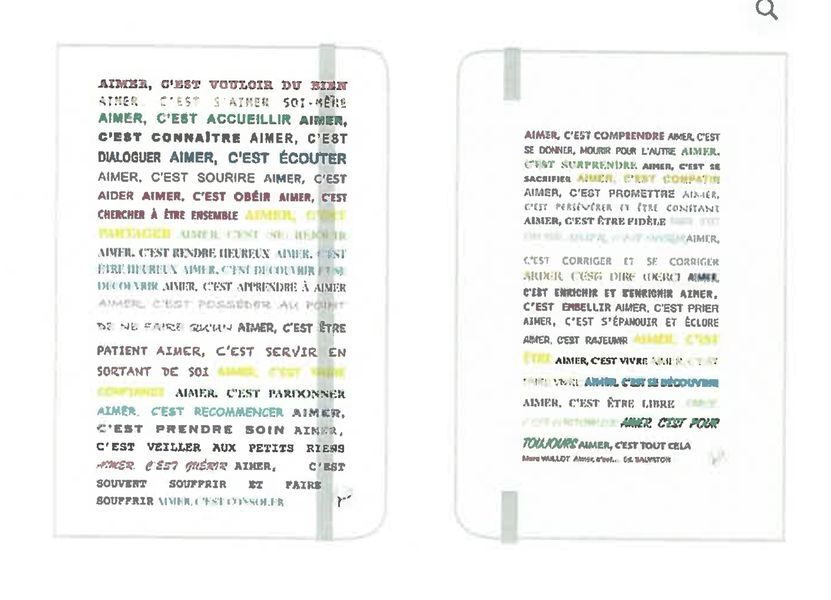 AIMER, C'EST VOULOIR DU BIEN
AIMER, C'EST S'AIMER SOI-MÊME
AIMER, C'EST ACCUEILLIR AIMER,
C'EST CONNAÎTRE AIMER, C'EST
DIALOGUER AIMER, C'EST ÉCOUTER
AIMER, C'EST SOURIRE AIMER, C'EST
AIDER AIMER, C'EST OBÉIR AIMER, C'EST
CHERCHER À ÊTRE ENSEMBLE AIMER, C'EST
PARTAGER AIMER C'EST SE RÉJOUIR
AIMER, C'EST RENDRE HEUREUX AIMER, C'EST
ÊTRE HEUREUX AIMER, C'EST DECOUVRIR SE
DECOUVRIR AIMER, C'EST APPRENDRE À AIMER
AIMER, C'EST POSSÉDER AU POINT
DE NE FAIRE QU'UN AIMER, C'EST ÊTRE
PATIENT AIMER, C'EST SERVIR EN
SORTANT DE SOI AIMER, C'EST FAIRE
CONFIANCE AIMER, C'EST PARDONNER
AIMER, C'EST RECOMMENCER AIMER,
C'EST PRENDRE SOIN AIMER,
C'EST VEILLER AUX PETITS RIENS
AIMER, C'EST GUÉRIR AIMER, C'EST
SOUVENT SOUFFRIR ET FAIRE
SOUFFRIR AIMER, C'EST CONSOLER
AIMER, C'EST COMPRENDRE AIMER, C'EST
SE DONNER, MOURIR POUR L'AUTRE AIMER,
C'EST SURPRENDRE AIMER, C'EST SE
SACRIFIER AIMER, C'EST COMPATIR
AIMER, C'EST PROMETTRE AIMER,
C'EST PERSÉVÉRER ET ÊTRE CONSTANT
AIMER, C'EST ÊTRE FIDÈLE
AIMER,
C'EST CORRIGER ET SE CORRIGER
AIMER, C'EST DIRE MERCI AIMER,
C'EST ENRICHIR ET S'ENRICHIR AIMER,
C'EST EMBELLIR AIMER, C'EST PRIER
AIMER, C'EST S'ÉPANOUIR ET ÉCLORE
AIMER, C'EST RAJEUNIR AIMER, C'EST
ÊTRE AIMER, C'EST VIVRE AIMER, C'EST
FAIRE VIVRE AIMER, C'EST SE DÉCOUVRIR
AIMER, C'EST ÊTRE LIBRE
AIMER, C'EST POUR
TOUJOURS AIMER, C'EST TOUT CELA
Marc WILLOT Aimer, c'est... Ed. SALVATOR